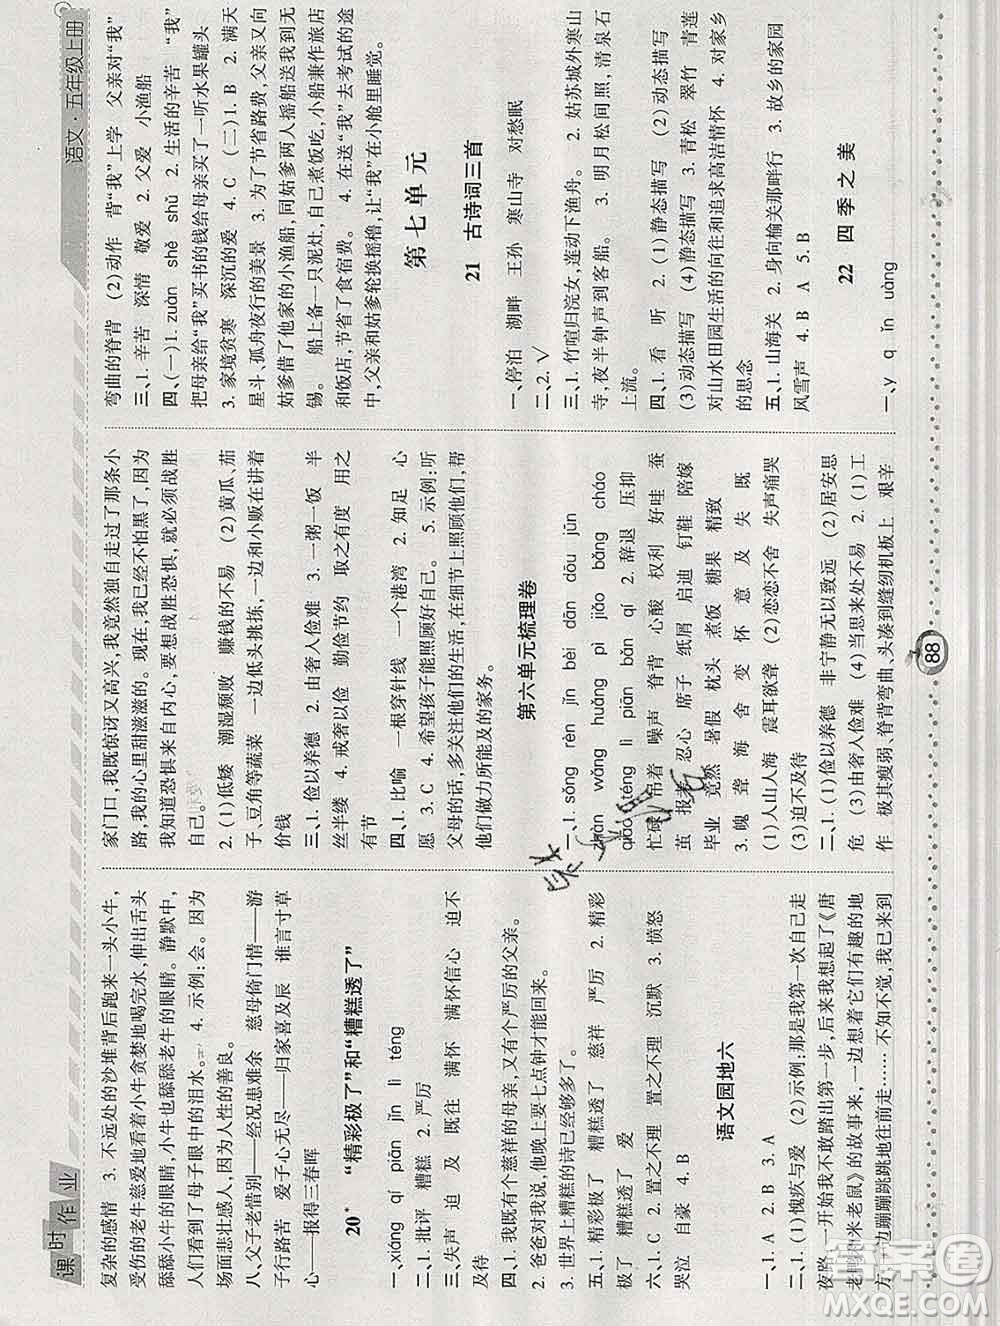 课时作业
语文·五年级上册
复杂的感情 3. 不远处的沙堆背后跑来一头小牛,
受伤的老牛慈爱地看着小牛贪婪地喝完水,伸出舌头
舔舔小牛的眼睛,小牛也舔舔老牛的眼睛。静默中,
人们看到了母子眼中的泪水。 4. 示例:会。因为
场面悲壮感人,因为人性的善良。
八、父子老惜别——经况患难余 慈母倚门情——游
子行路苦 爱子心无尽——归家喜及辰 谁言寸草
心——报得三春晖
20* “精彩极了”和“糟糕透了”
一、xiáng qí piān jǐn lì téng
二、1. 批评 糟糕 2. 严厉
三、失声 迫 及 既往 满怀 满怀信心 迫不
及待
四、1. 我既有个慈祥的母亲,又有个严厉的父亲。
2. 爸爸对我说,他晚上要七点钟才能回来。
3. 世界上糟糕的诗已经够多了。
五、1. 精彩极了 糟糕透了 慈祥 严厉 2. 精彩
极了 糟糕透了 爱
六、1. C 2. 置之不理 置之不理 沉默 3. 愤怒
哭泣 自豪 4. B
语文园地六
一、1. A 2. B 3. A
二、1. (1)愧疚与爱 (2)示例:那是我第一次自己走
夜路,一开始我不敢踏出第一步,后来我想起了《唐
老鸭和米老鼠》的故事来,一边想着它们有趣的地
方,一边蹦蹦跳跳地往前走……不知不觉,我已来到
家门口,我既惊讶又高兴,我竟然独自走过了那条小
路,我的心里甜滋滋的。现在,我已经不怕黑了,因为
我知道恐惧来自内心,要想战胜恐惧,就必须战胜
自己。
2. (1)低矮 潮湿频败 赚钱的不易 (2)黄瓜、茄
子、豆角等蔬菜 一边低头挑拣,一边和小贩在讲着
价钱
三、1. 俭以养德 2. 由奢人俭难 3. 一粥一饭 半
丝半缕 4. 戒奢以俭 勤俭节约 取之有度 用之
有节
四、1. 比喻 一根穿针线 一个港湾 2. 知足 心
愿 3. C 4. 希望孩子能照顾好自己。 5. 示例:听
父母的话,多关注他们的生活,在细节上照顾他们,帮
他们做力所能及的家务。
第六单元梳理卷
一、1. sōng rèn jǐn bèi dān dōu jūn
zhàn wǒng huǎng pì jiǎo bǎng chāo
téng lì piān bǎn qí 2. 辞退 压抑
忙碌 吊着 噪声 脊背 心酸 权利 好哇 蚕
茧 报考 忍心 席子 纸屑 启迪 钉鞋 陪嫁
毕业 竟然 暑假 枕头 煮饭 糖果 精致
3. 魄 聋 海 舍 变 怀 意 及 失 既
(1)人山人海 震耳欲聋 (2)恋恋不舍 失声痛哭
(3)迫不及待
二、1. (1)俭以养德 非宁静无以致远 (2)居安思
危 (3)由奢人俭难 (4)当思来处不易 2. (1)工
作 极其瘦弱、脊背弯曲、头凑到缝纫机板上 艰辛
弯曲的脊背 (2)动作 背“我”上学 父亲对“我”
三、1. 辛苦 深情 敬爱 2. 父爱 小渔船
四、(一)1. zuàn shě shǔ 2. 生活的辛苦 “我”
把母亲给“我”买书的钱给母亲买了一听水果罐头
3. 家境贫寒 深沉的爱 4. C (二)1. B 2. 满天
星斗、孤舟夜行的美景 3. 为了节省路费,父亲又向
姑爹借了他家的小渔船,同姑爹两人摇船送我到无
锡。 船上备一只泥灶,自己煮饭吃,小船兼作旅店
和饭店,节省了食宿费。 4. 在送“我”去考试的途
中,父亲和姑爹轮换摇橹,让“我”在小舱里睡觉。
第七单元
21 古诗词三首
一、停泊 湖畔 王孙 寒山寺 对愁眠
二、2. √
三、1. 竹喧归浣女,莲动下渔舟。 2. 姑苏城外寒山
寺,夜半钟声到客船。 3. 明月松间照,清泉石
上流。
四、1. 看 听 2. (1)静态描写 (2)动态描写
(3)动态描写 (4)静态描写 3. 青松 翠竹 青莲
对山水田园生活的向往和追求高洁情怀 4. 对家乡
的思念
五、1. 山海关 2. 身向榆关那畔行 3. 故乡的家园
风雪声 4. B A 5. B
22 四季之美
一、y q ìn uàng
88
答案圈
MXQE.COM